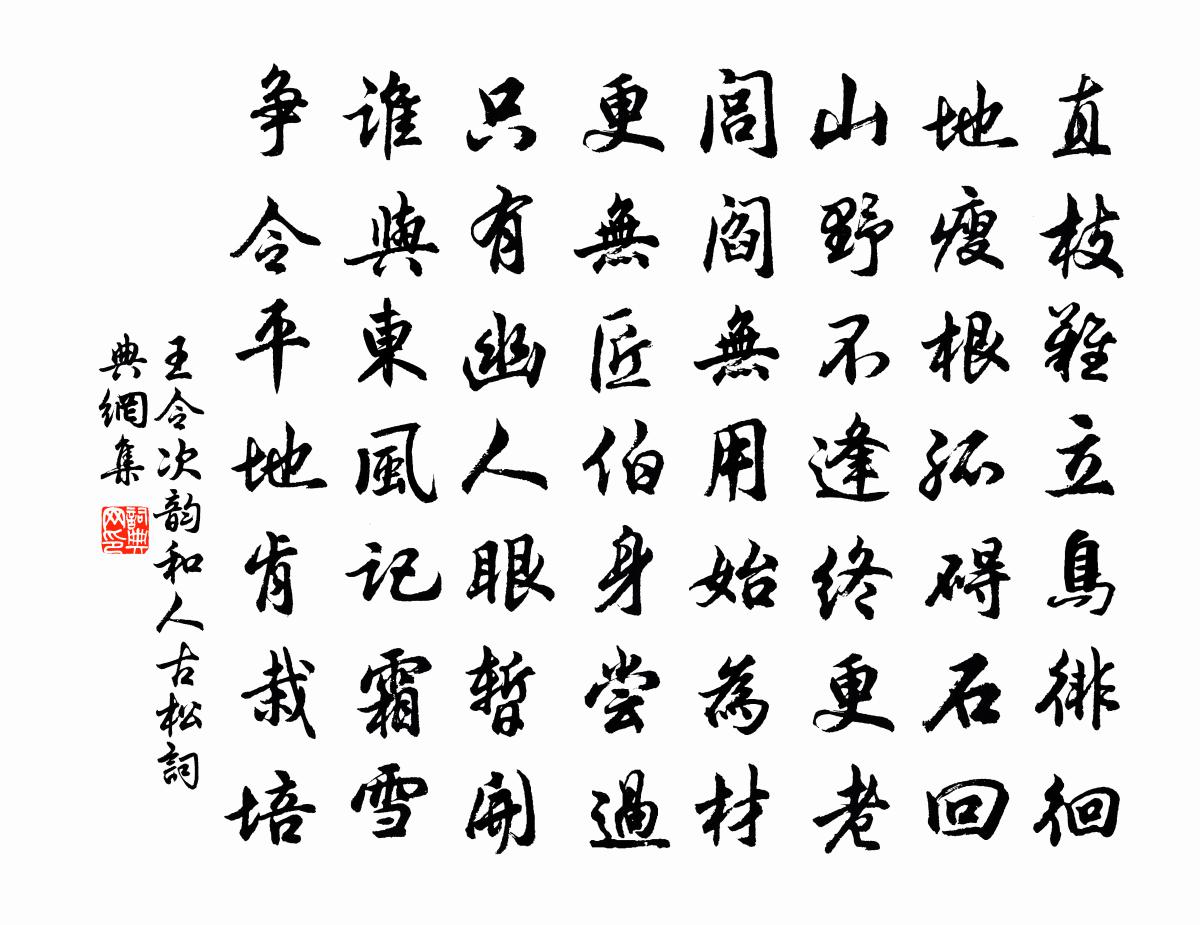 直枝難立鳥徘徊
地瘦根孤碍石回
山野不逢終更老
閭閻無用始為材
更無匠伯身嘗過
只有幽人眼暫開
誰與東風記霜雪
争令平地肯栽培
王令次韵和人古松詞
典網集
詞典网印